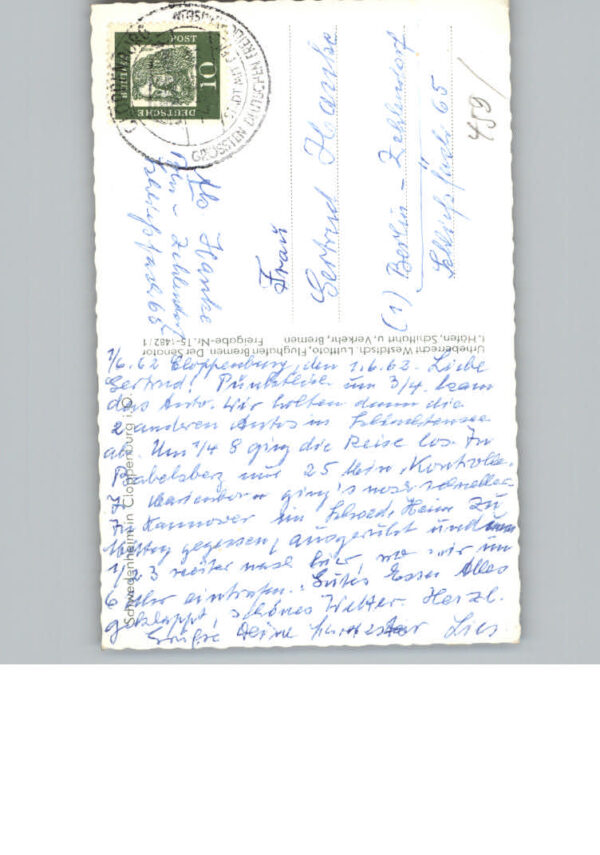 DEUTSCHE
BUNDESPOST
10
GRÖSSTEN DEUTSCHEN
459/
Frau
Gertrud Hanke
(1) Berlin-Zehlendorf
Schließfach 65
Hanke
Zehlendorf
Schließfach 65
Urheberrecht Westdtsch. Luftfoto, Flughafen Bremen. Der Senator
f. Häfen, Schiffahrt u. Verkehr, Bremen
Freigabe-Nr. 15-1482/1
Schwedenheim in Cloppenburg i. O.
1/6.62 Cloppenburg, den 1.6.62. Liebe
Gertrud! Pünktlich um 3/4. kam
das Auto. Wir holten dann die
2 anderen Autos in Schlachtensee
ab. Um 1/4 8 ging die Reise los. In
Babelsberg nur 25 Min. Kontrolle.
In Marienborn ging's noch schneller.
In Hannover im Heim zu
Mittag gegessen, ausgeruht und
1/2 3 weiter nach hier, wo wir um
6 Uhr eintrafen. Gutes Essen Alles
geklappt, schönes Wetter. Herzl.
Grüße Deine Lies.